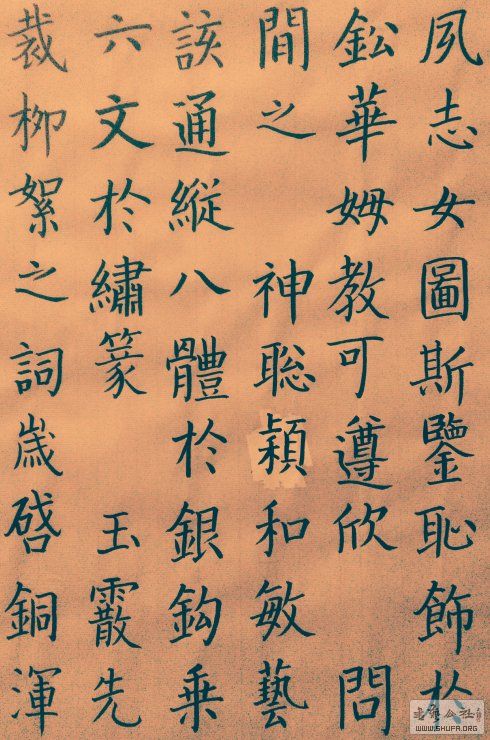 夙志女圖斯鑒恥飾於
鈆華姆教可遵欣 問
間之 神聡穎和敏藝
該通縱八體於銀鈎乗
六文於繡篆 玉霰先
裁柳絮之詞歲啓銅渾
WWW.SHUFA.ORG